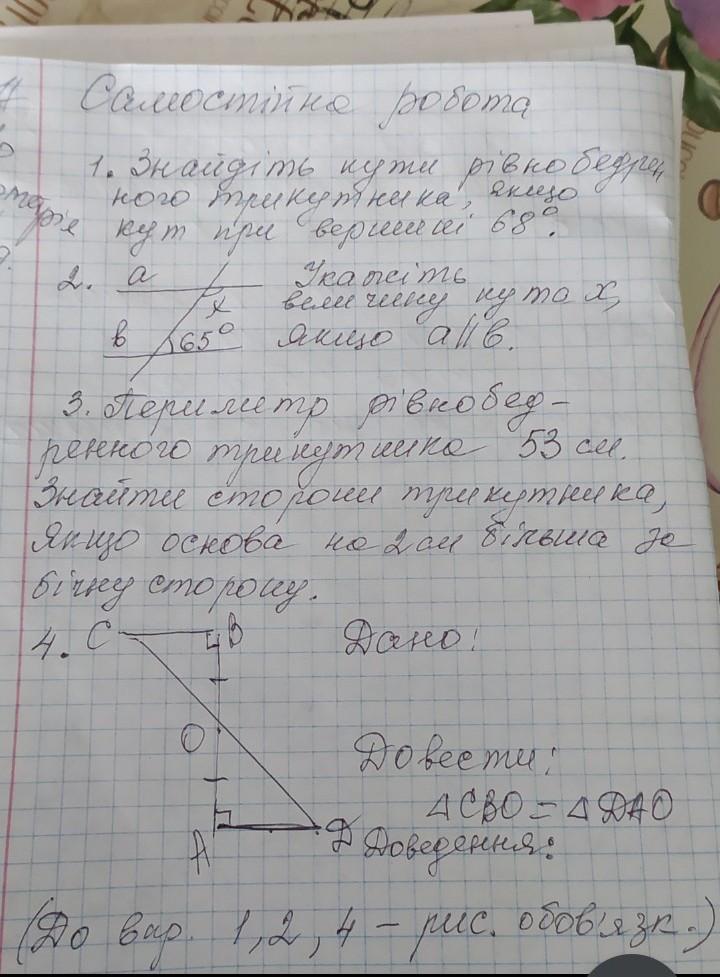 Самостійна робота
1. Знайдіть кути рівнобедрен
ного трикутника, якщо
кут при вершині 68°.
2. a Укажіть
x величину кута x,
b 65° якщо a||b.
3. Периметр рівнобед-
ренного трикутника 53 см.
Знайти сторони трикутника,
якщо основа на 2 см більша за
бічну сторону.
4. C B Дано:
O
Довести:
△CBO = △DAO
A D Доведення:
(До вар. 1, 2, 4 - рис. обов'язк.)